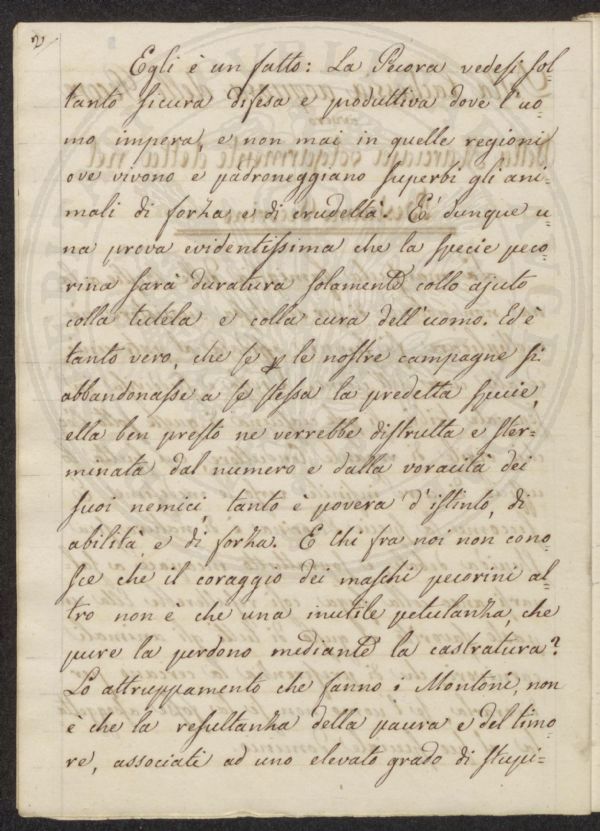 2
Egli è un fatto: La Pecora vedesi sol-
tanto sicura difesa e produttiva dove l'uo-
mo impera, e non mai in quelle regioni
ove vivono e padroneggiano superbi gli ani-
mali di forza e di crudeltà. E' dunque u-
na prova evidentissima che la specie peco-
rina sarà duratura solamente collo ajuto
colla tutela e colla cura dell'uomo. Ed è
tanto vero, che se p le nostre campagne si
abbandonasse a se stessa la predetta specie,
ella ben presto ne verrebbe distrutta e ster-
minata dal numero e dalla voracità dei
suoi nemici, tanto è povera d'istinto, di
abilità e di forza. E chi fra noi non cono-
sce che il coraggio dei maschi pecorini al-
tro non è che una inutile petulanza, che
pure la perdono mediante la castratura?
Lo attruppamento che fanno i Montoni, non
è che la resultanza della paura e del timo-
re, associati ad uno elevato grado di stupi-